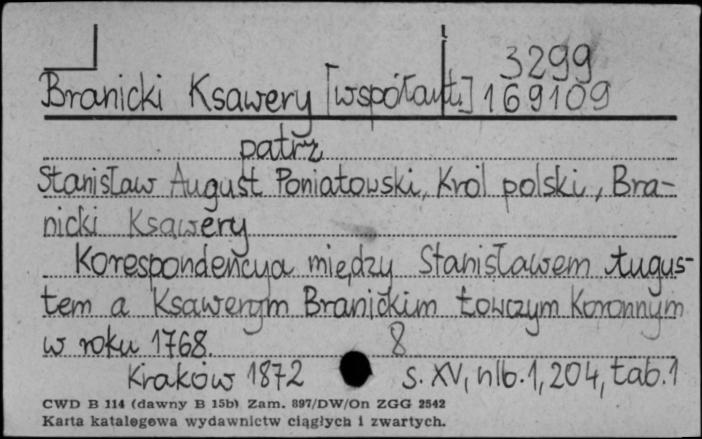 3299
Branicki Ksawery [współaut.] 169109
patrz
Stanisław August Poniatowski, Król polski, Bra-
nicki Ksawery
Korespondencya między Stanisławem Augus-
tem a Ksawerym Branickim Łowczym Koronnym
w roku 1768. 8
Kraków 1872 s. XV, nlb. 1, 204, tab. 1
CWD B 114 (dawny B 15b) Zam. 897/DW/On ZGG 2542
Karta katalogowa wydawnictw ciągłych i zwartych.